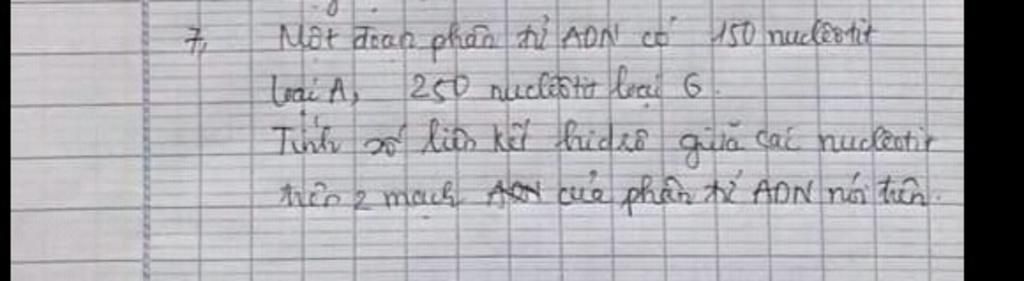 7, Một đoạn phân tử ADN có 150 nuclêôtit
loại A, 250 nuclêôtit loại G.
Tính số liên kết hiđrô giữa các nuclêôtit
trên 2 mạch của phân tử ADN nói trên.